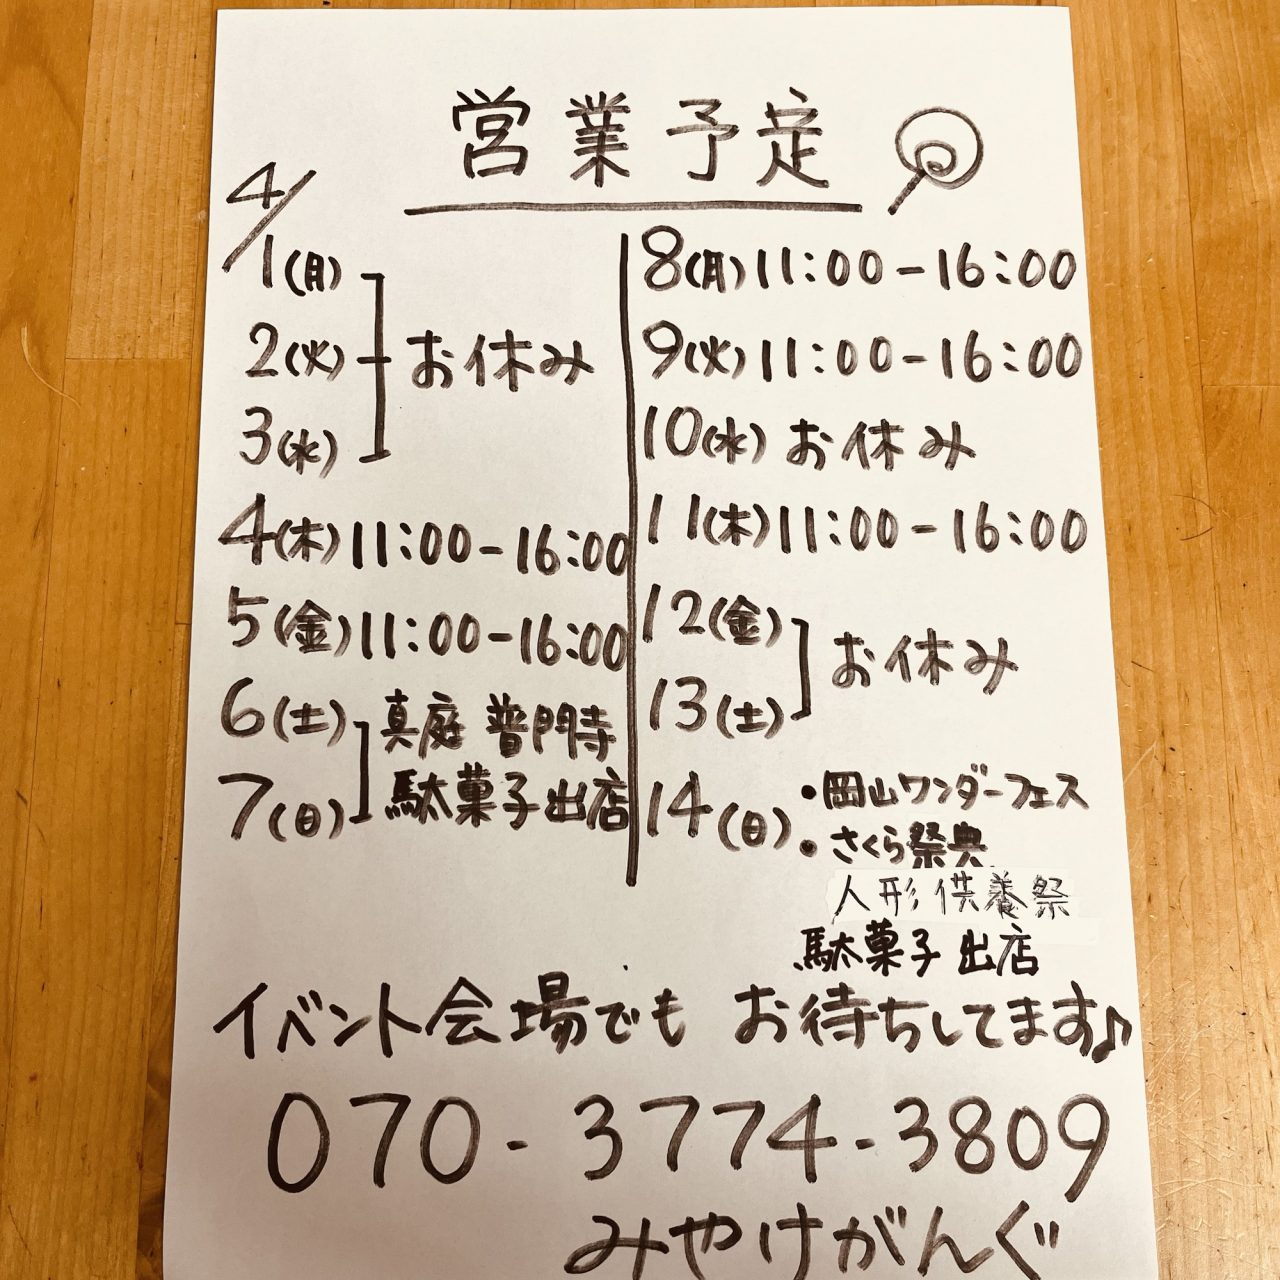 営業予定
4/
1(月)
2(火) お休み
3(水)
4(木) 11:00-16:00
5(金) 11:00-16:00
6(土) 真庭 普門寺
7(日) 駄菓子出店
8(月) 11:00-16:00
9(火) 11:00-16:00
10(水) お休み
11(木) 11:00-16:00
12(金) お休み
13(土)
14(日) ・岡山ワンダーフェス
・さくら祭典
人形供養祭
駄菓子出店
イベント会場でも お待ちしてます♪
070-3774-3809
みやけがんぐ